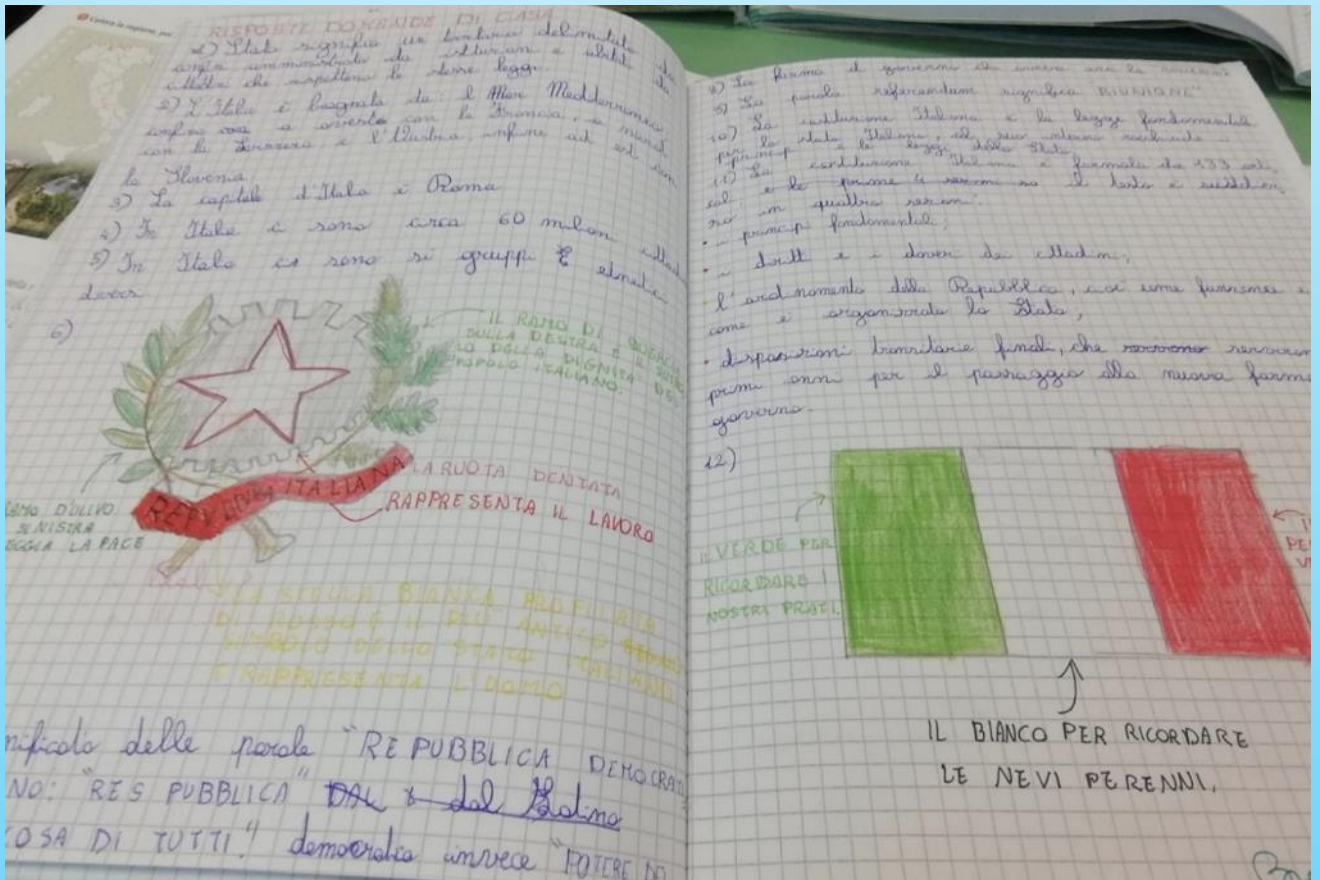 RISPOSTE DOMANDE DI CASA
1) Stato significa un territorio delimitato da
amministrato da istituzioni e abitato da
che rispettano le stesse leggi.
2) L'Italia è bagnata da l Mar Mediterraneo,
confina a ovest con la Francia, a nord
con la Svizzera e l'Austria, infine ad est con
la Slovenia
3) La capitale d'Italia è Roma
4) In Italia ci sono circa 60 milioni
5) In Italia ci sono gruppi etnici
diversi
6)
IL RAMO DI QUERCIA
SULLA DESTRA È IL
DELLA DIGNITÀ DEL
POPOLO ITALIANO.
REPUBBLICA ITALIANA
LA RUOTA DENTATA
RAPPRESENTA IL LAVORO
RAMO D'OLIVO
SINISTRA
LA PACE
LA STELLA BIANCA PROFILATA
DI ROSSO È IL PIÙ ANTICO
SIMBOLO DELLO STATO ITALIANO
E RAPPRESENTA L'UOMO
delle parole "REPUBBLICA
"RES PUBBLICA" DAL dal Latino
COSA DI TUTTI" democratica invece "POTERE
8) La forma di governo
9) La parola referendum significa RIUNIONE"
10) La costituzione Italiana è la legge fondamentale
per lo stato Italiano, al suo interno
principi e le leggi dello Stato
11) La costituzione è formata da 133
e le prime 4 il testo è
in quattro
• i principi fondamentali;
• i diritti e i doveri dei cittadini,
l'ordinamento della Repubblica, come funziona e
come è organizzato lo Stato,
• disposizioni transitorie finali, che
primi anni per il passaggio alla nuova forma
governo.
12)
IL VERDE PER
RICORDARE I
NOSTRI PRATI.
IL BIANCO PER RICORDARE
LE NEVI PERENNI.